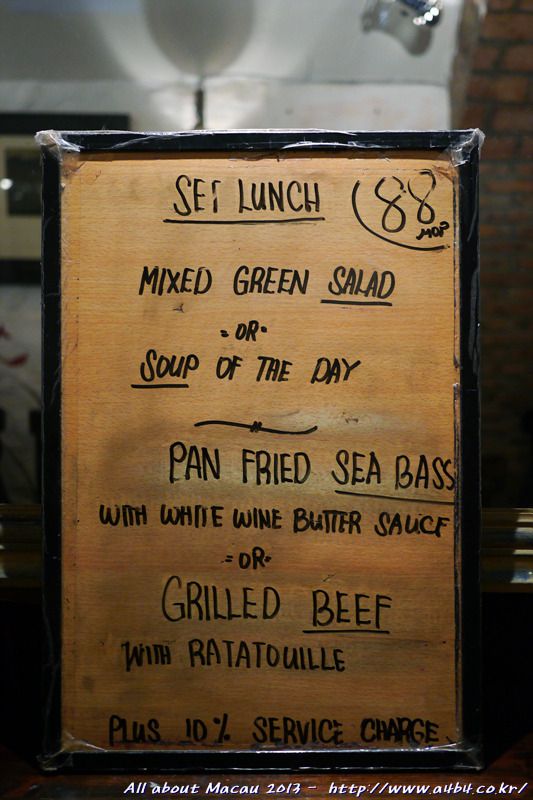 SET LUNCH
88
MOP
MIXED GREEN SALAD
- OR -
SOUP OF THE DAY
PAN FRIED SEA BASS
WITH WHITE WINE BUTTER SAUCE
- OR -
GRILLED BEEF
WITH RATATOUILLE
PLUS 10% SERVICE CHARGE
All about Macau 2013 - http://www.a4b4.co.kr/